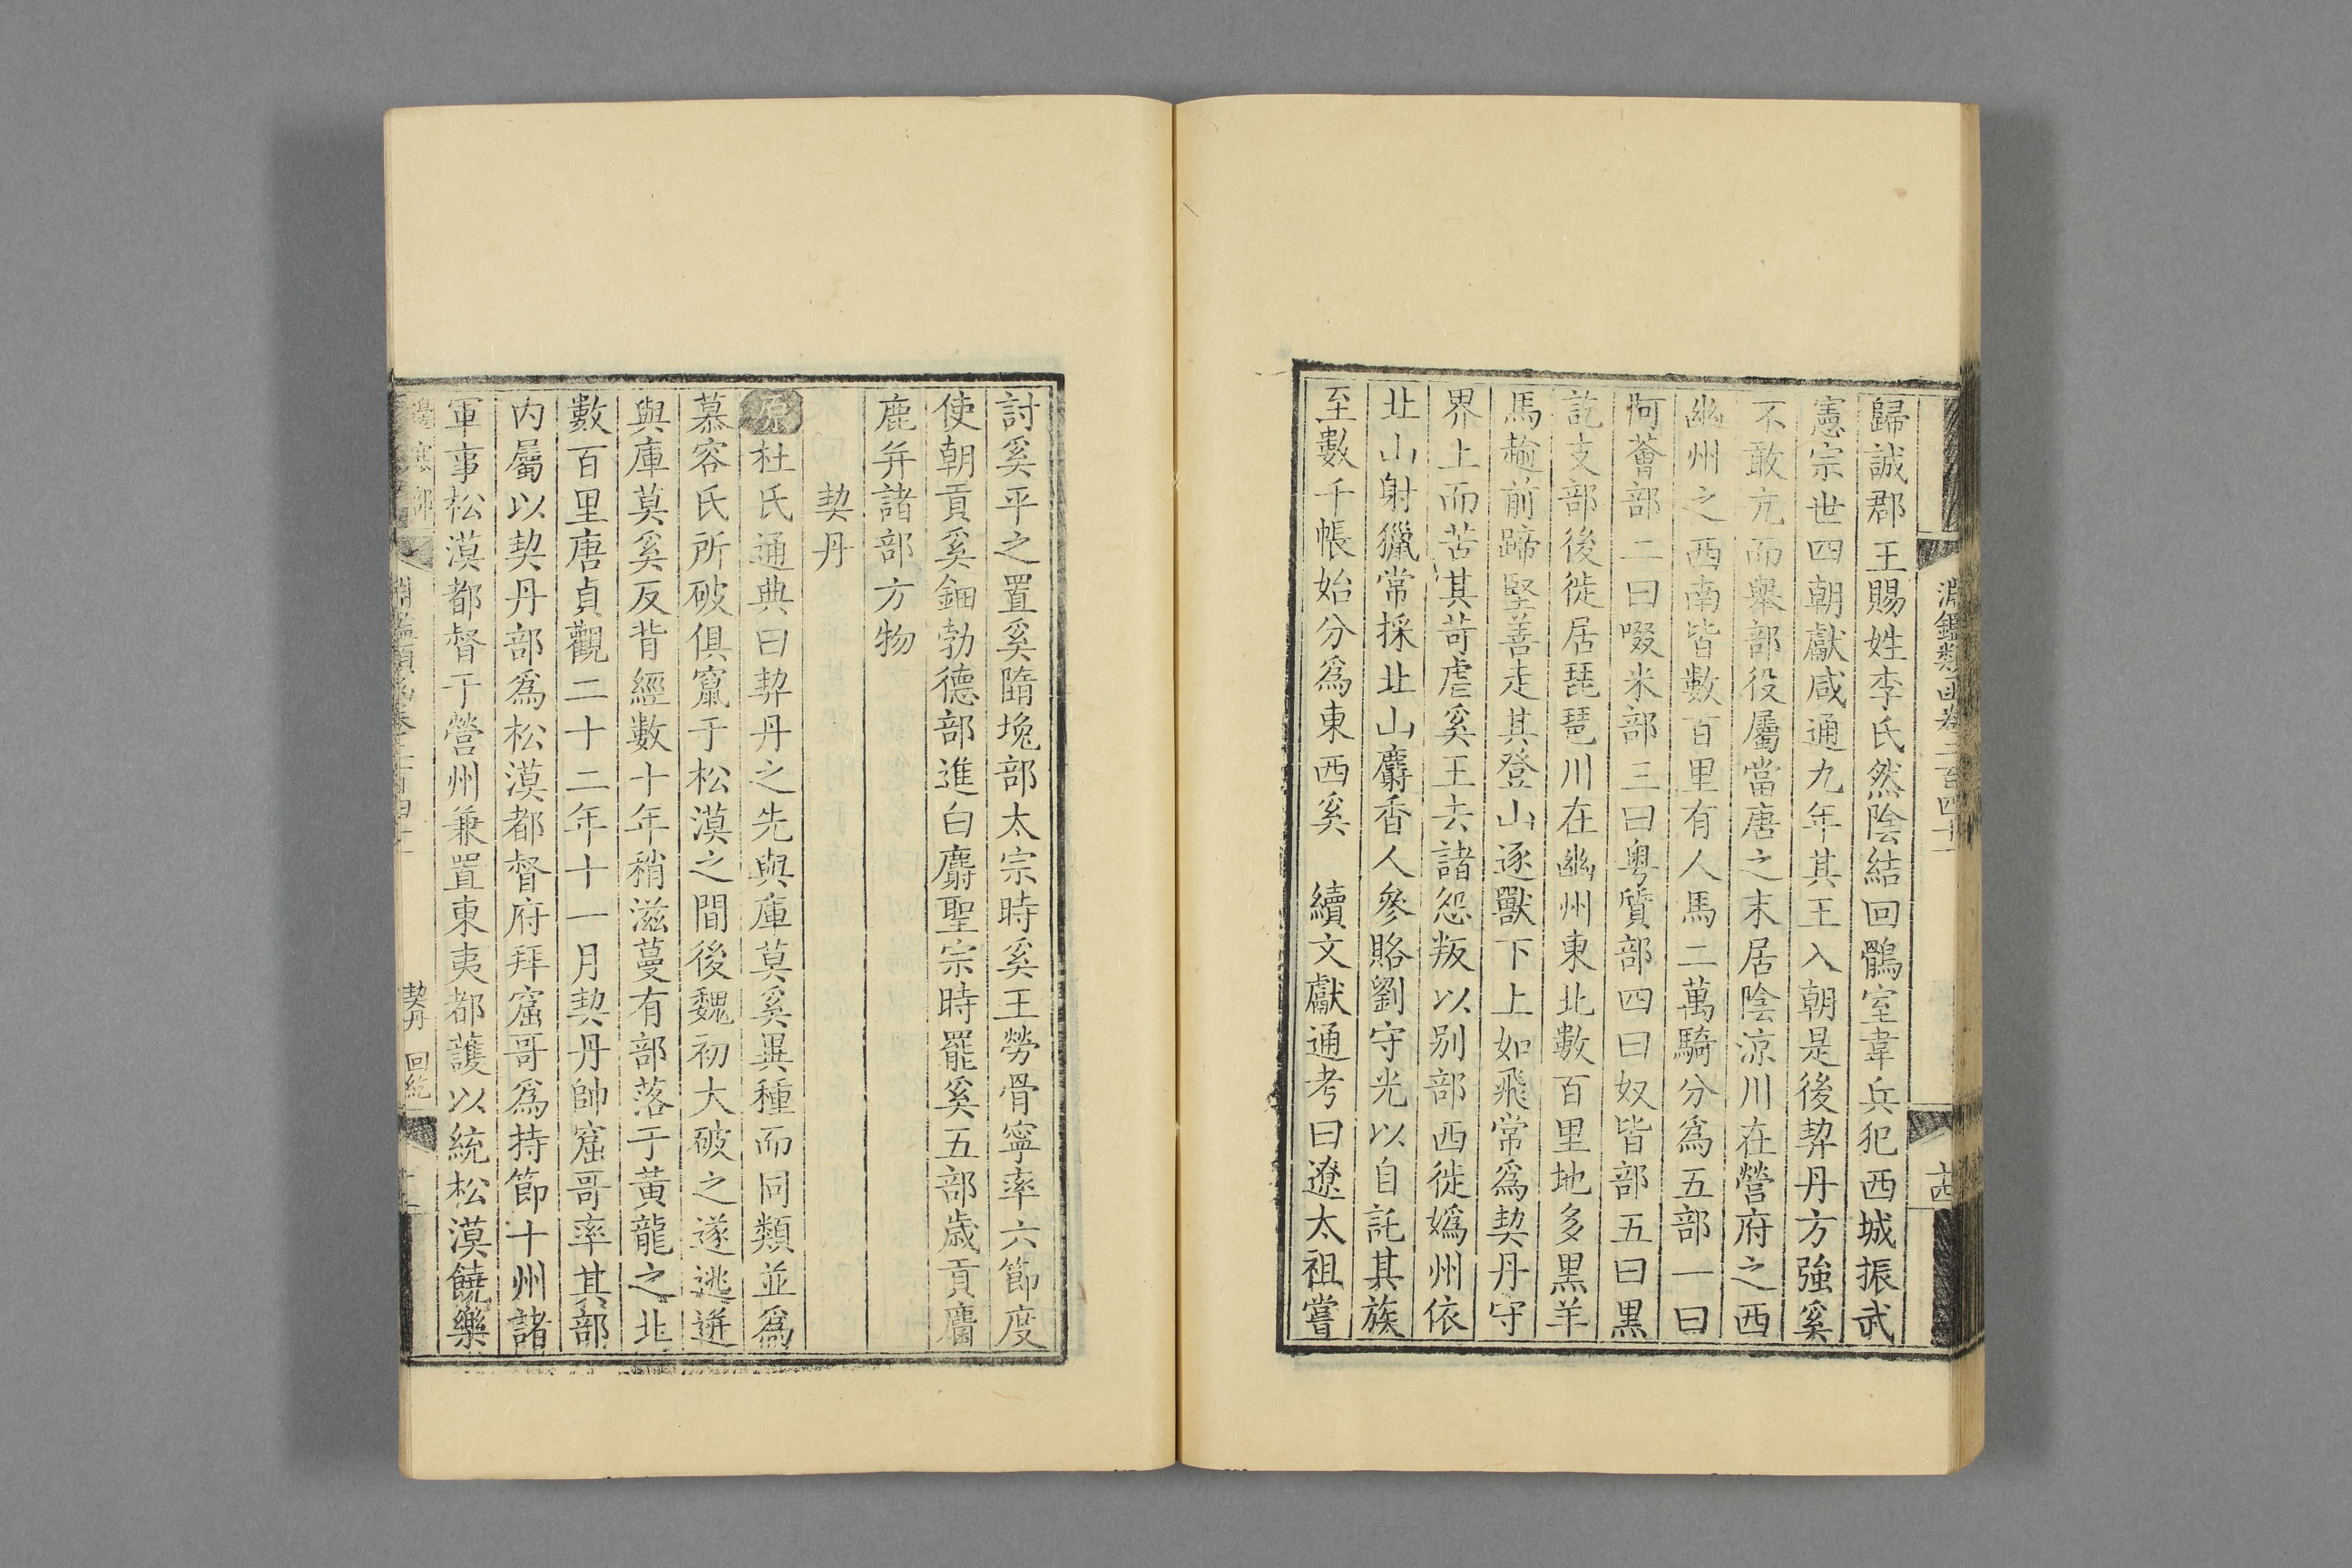 淵鑑類函卷二百四十一
十四
歸誠郡王賜姓李氏然陰結回鶻室韋兵犯西城振武
憲宗世四朝獻咸通九年其王入朝是後契丹方強奚
不敢亢而舉部役屬當唐之末居陰涼川在營府之西
幽州之西南皆數百里有人馬二萬騎分爲五部一曰
阿薈部二曰啜米部三曰粤質部四曰奴皆部五曰黒
訖支部後徙居琵琶川在幽州東北數百里地多黒羊
馬趫前蹄堅善走其登山逐獸下上如飛常爲契丹守
界上而苦其苛虐奚王去諸怨叛以别部西徙嬀州依
北山射獵常採北山麝香人參賂劉守光以自託其族
至數千帳始分爲東西奚 續文獻通考曰遼太祖嘗
討奚平之置奚隋㙦部太宗時奚王勞骨寧率六節度
使朝貢奚鈿勃德部進白麝聖宗時罷奚五部歲貢麕
鹿并諸部方物
契丹
原杜氏通典曰契丹之先與庫莫奚異種而同類並爲
慕容氏所破俱竄于松漠之間後魏初大破之遂逃迸
與庫莫奚反背經數十年稍滋蔓有部落于黃龍之北
數百里唐貞觀二十二年十一月契丹帥窟哥率其部
内屬以契丹部爲松漠都督府拜窟哥爲持節十州諸
軍事松漠都督于營州兼置東夷都護以統松漠饒樂
邊塞部
淵鑑類函卷二百四十一
契丹 回紇